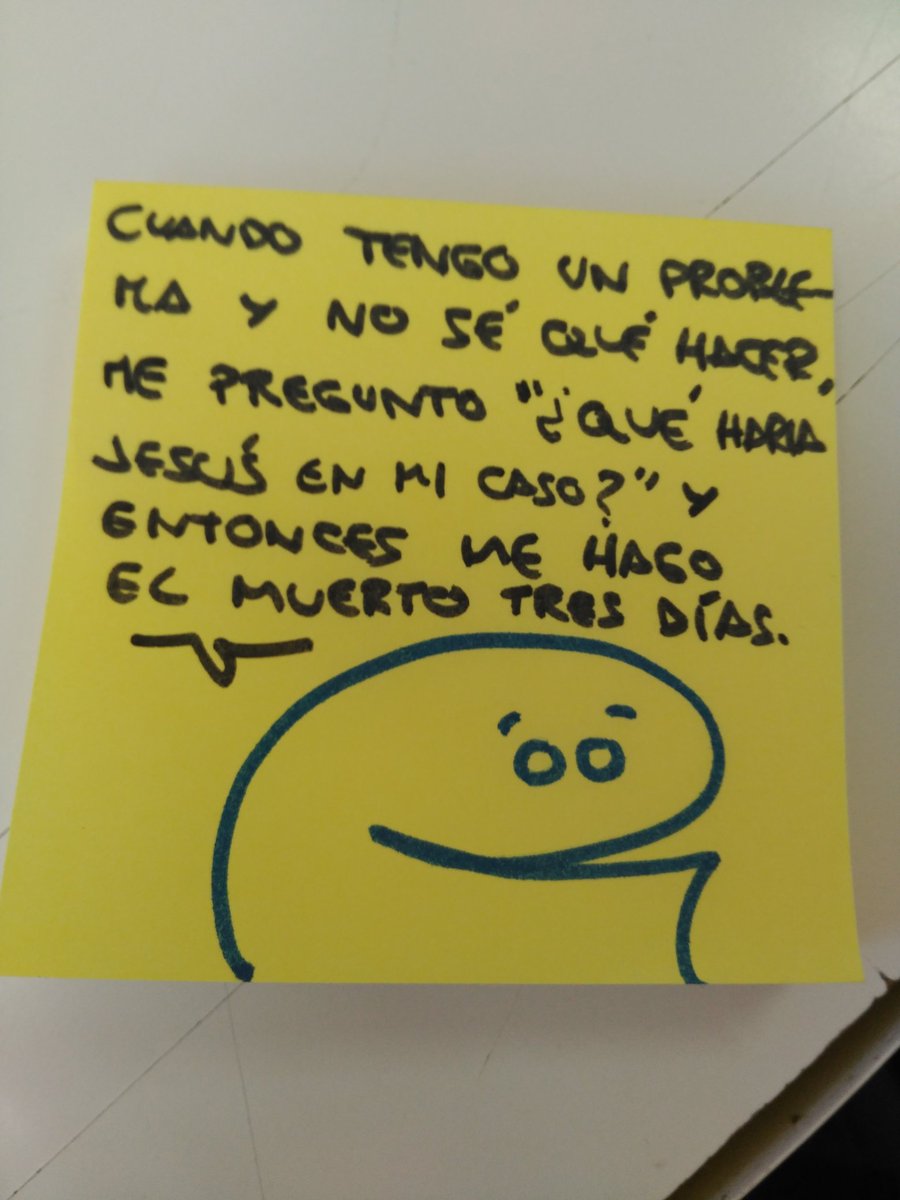 CUANDO TENGO UN PROBLE-
MA Y NO SÉ QUÉ HACER,
ME PREGUNTO "¿QUÉ HARIA
JESÚS EN MI CASO?" Y
ENTONCES ME HAGO
EL MUERTO TRES DÍAS.